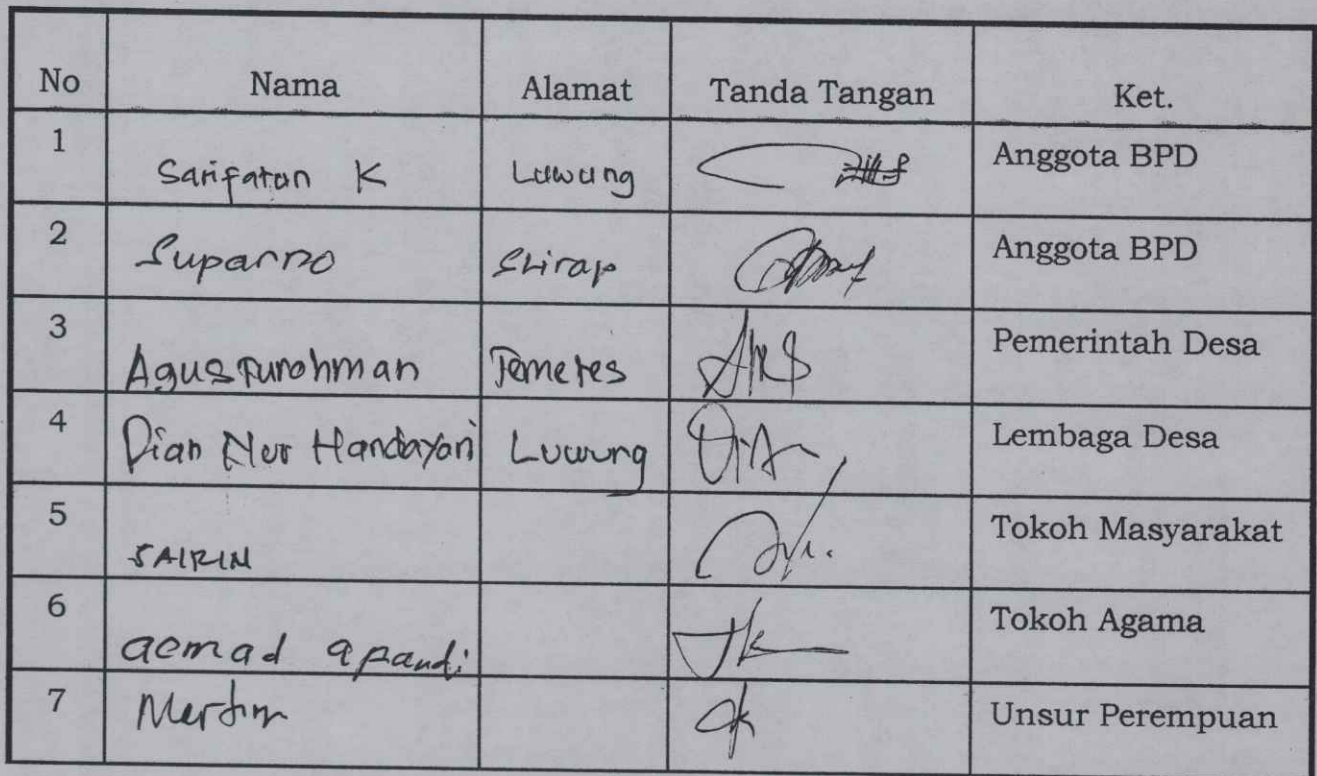 No Nama Alamat Tanda Tangan Ket.
1 Sarifatun K Luwung Anggota BPD
2 Suparno Sirap Anggota BPD
3 Agus Turohman Temetes Pemerintah Desa
4 Dian Nur Handayani Luwung Lembaga Desa
5 SAIRIN Tokoh Masyarakat
6 acmad apandi Tokoh Agama
7 Unsur Perempuan